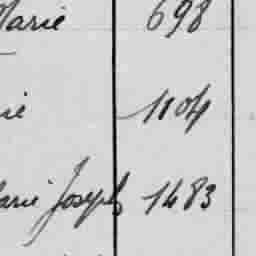 Marie 698
ie 1104
Marie Joseph 1483